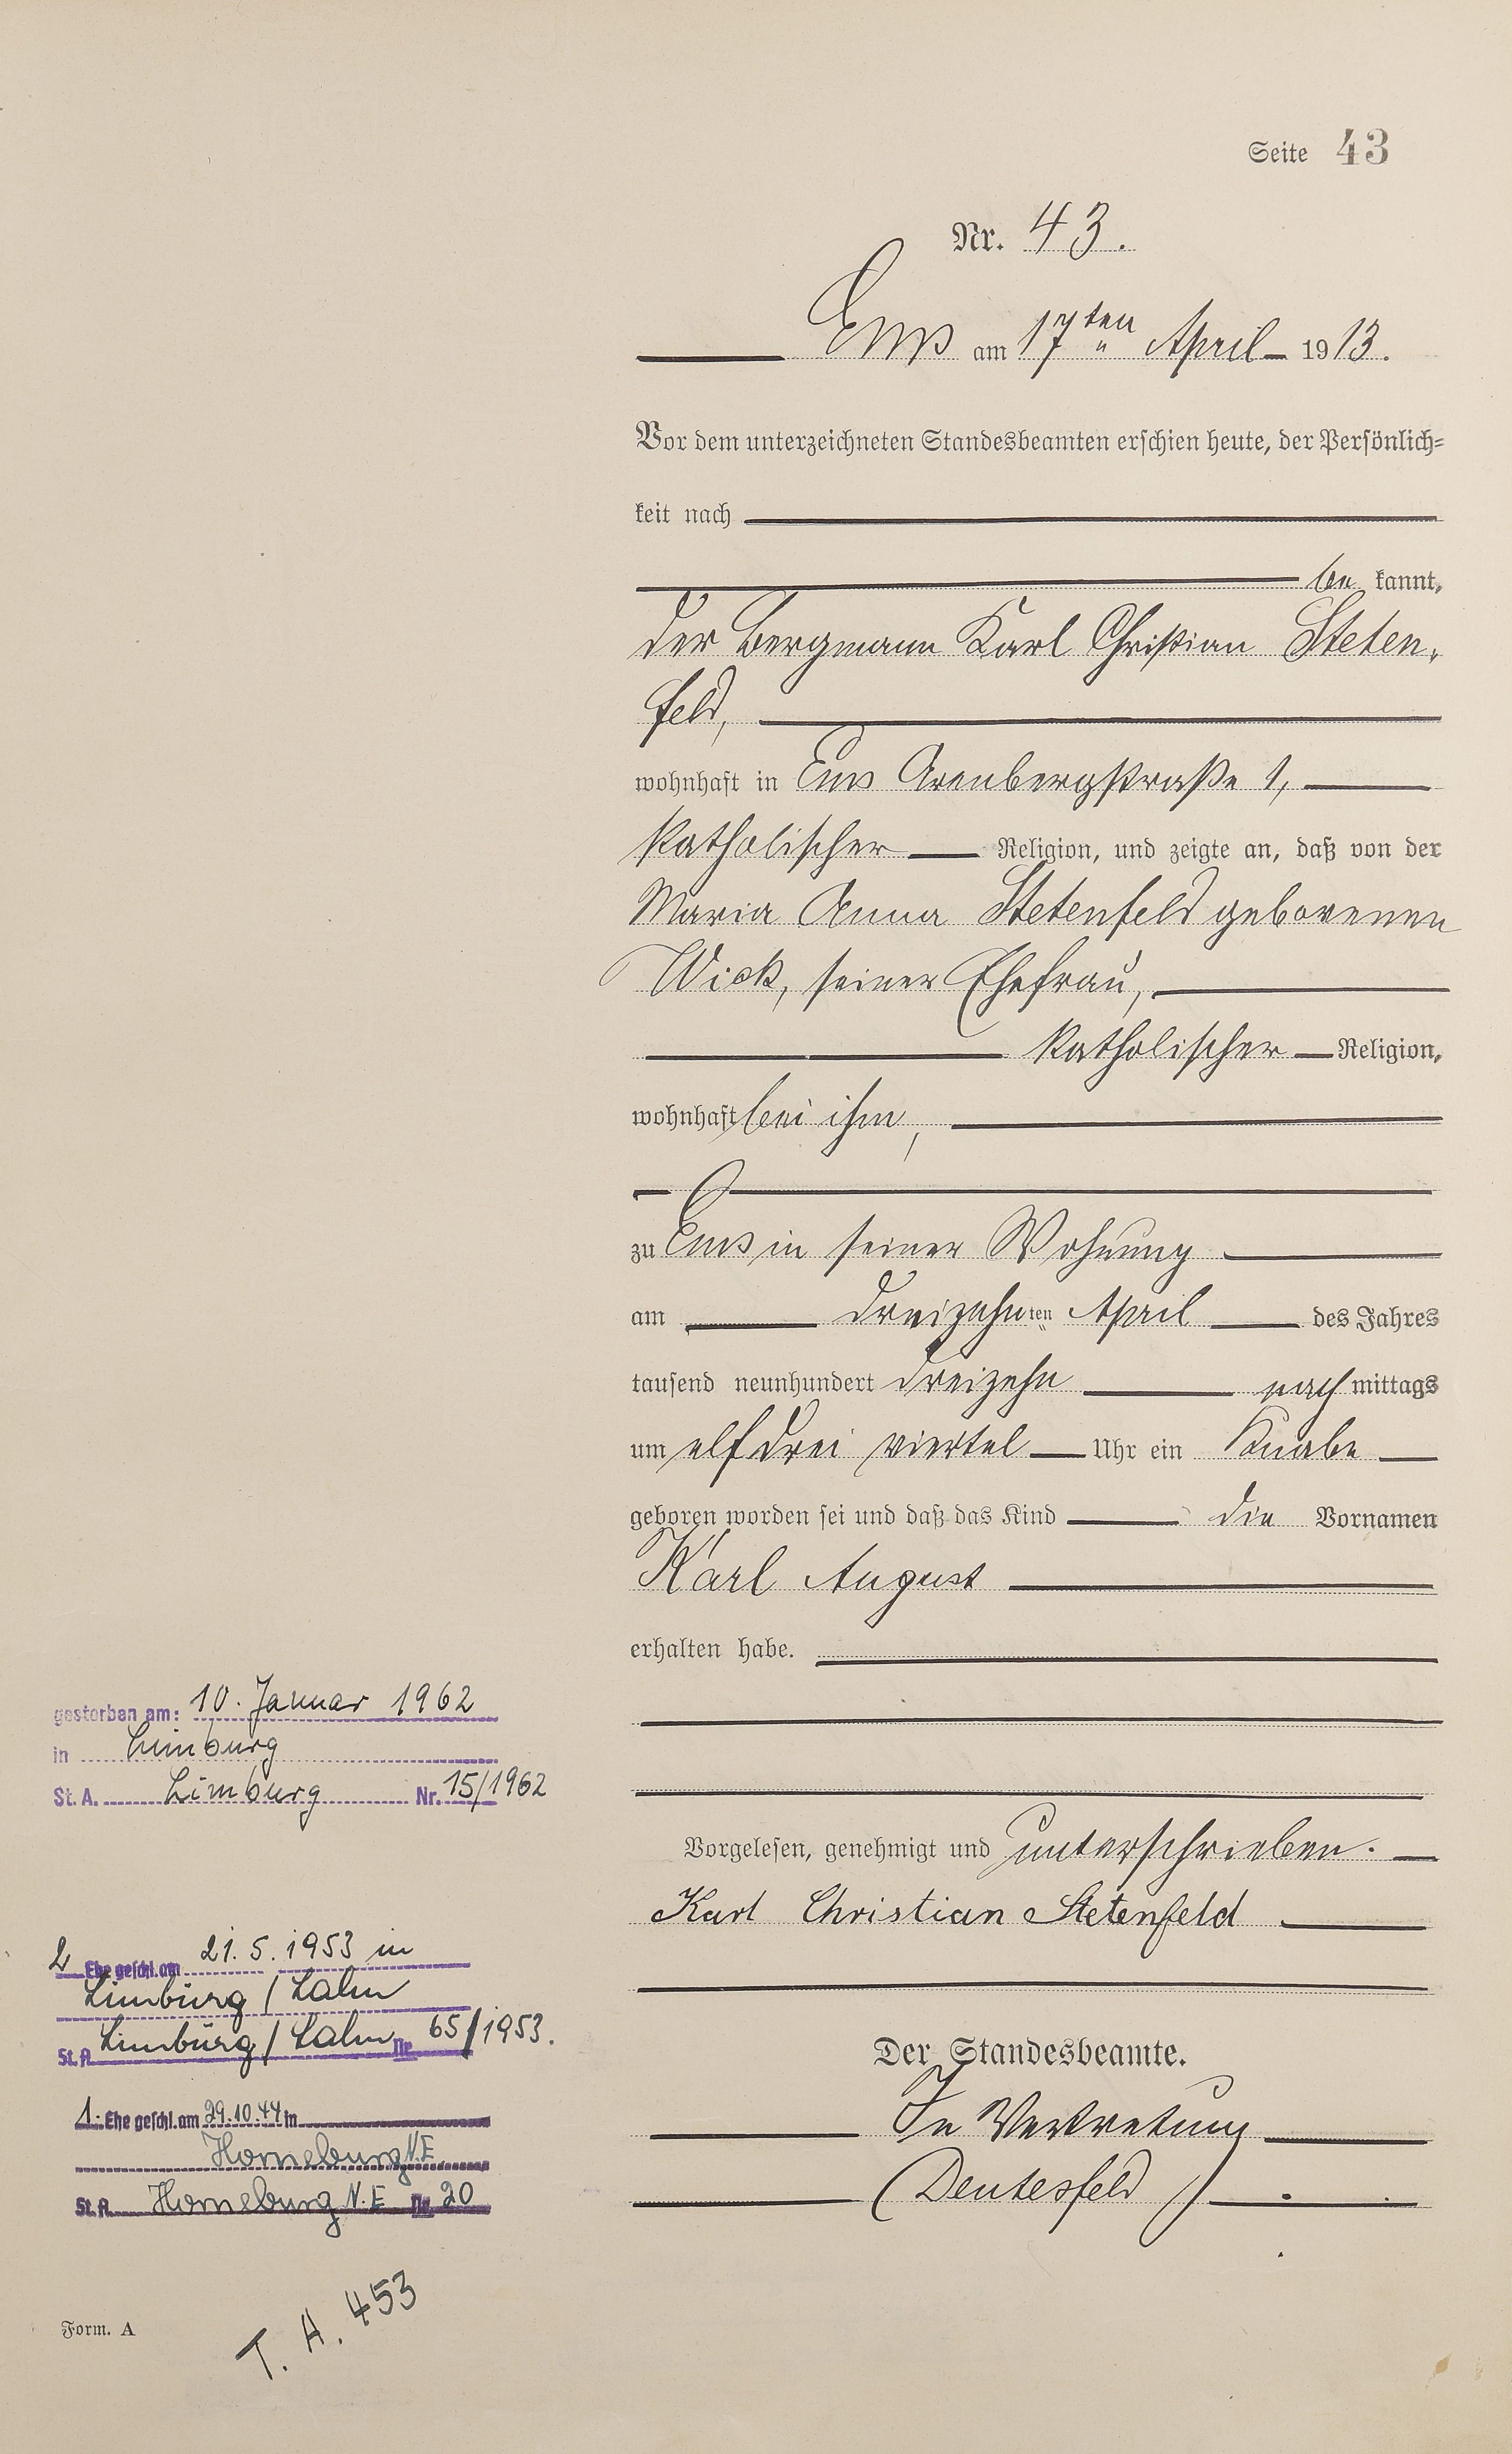 Seite 43
Nr. 43.
Ems am 17ten April 1913.
Vor dem unterzeichneten Standesbeamten erschien heute, der Persönlich-
keit nach
be kannt,
der Bergmann Karl Christian Steten-
feld,
wohnhaft in Ems Arenbergstraße 1,
katholischer Religion, und zeigte an, daß von der
Maria Anna Stetenfeld geborenen
Wick, seiner Ehefrau,
katholischer Religion,
wohnhaft bei ihm,
zu Ems in seiner Wohnung
am dreizehnten April des Jahres
tausend neunhundert dreizehn nach mittags
um elf drei viertel Uhr ein Knabe
geboren worden sei und daß das Kind die Vornamen
Karl August
erhalten habe.
Vorgelesen, genehmigt und unterschrieben.
Karl Christian Stetenfeld
Der Standesbeamte.
In Vertretung
(Deutesfeld)
gestorben am: 10. Januar 1962
in Limburg
St. A. Limburg Nr. 15/1962
2 Ehe geschl. am 21.5.1953 in
Limburg / Lahn
St. A. Limburg / Lahn Nr. 65/1953.
1. Ehe geschl. am 29.10.44 in
Horneburg N.E
St. A. Horneburg N.E Nr. 20
T. A. 453
Form. A